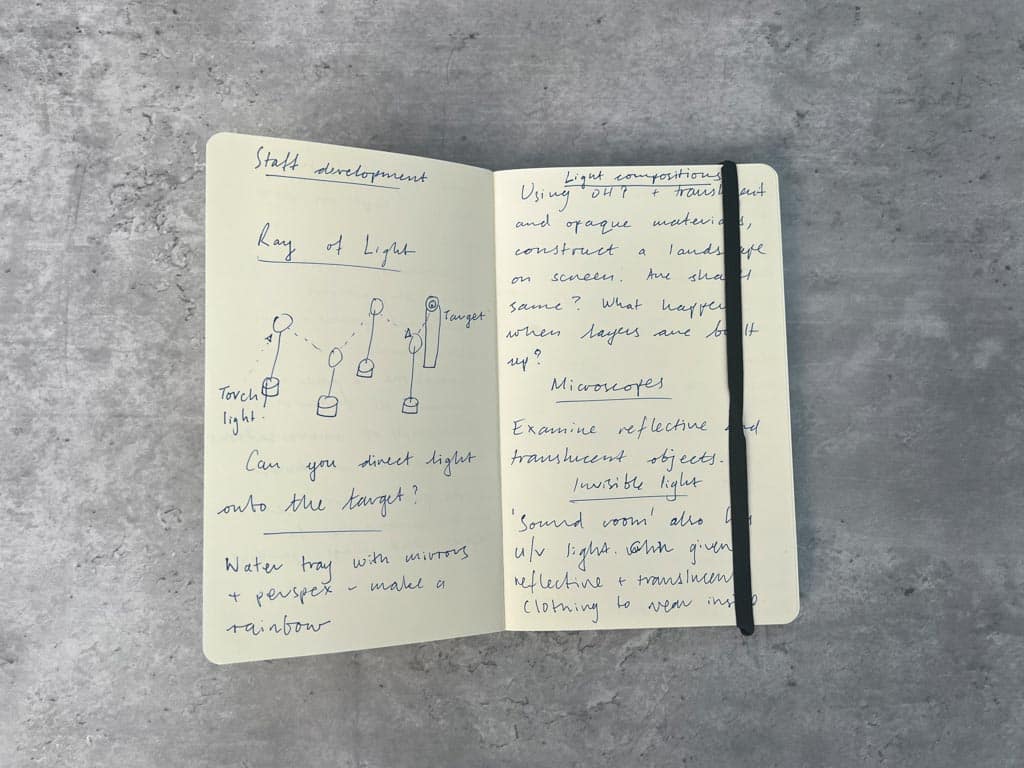 Staff development
Ray of Light
Target
Torch
light.
Can you direct light
onto the target?
Water tray with mirrors
+ perspex - make a
rainbow
Light compositions
Using OH? +
and opaque
construct a
on screen. Are
same? What
when layers are
up?
Microscopes
Examine reflective
translucent objects.
Invisible light
'Sound room' also
u/v light. given
reflective +
clothing to wear